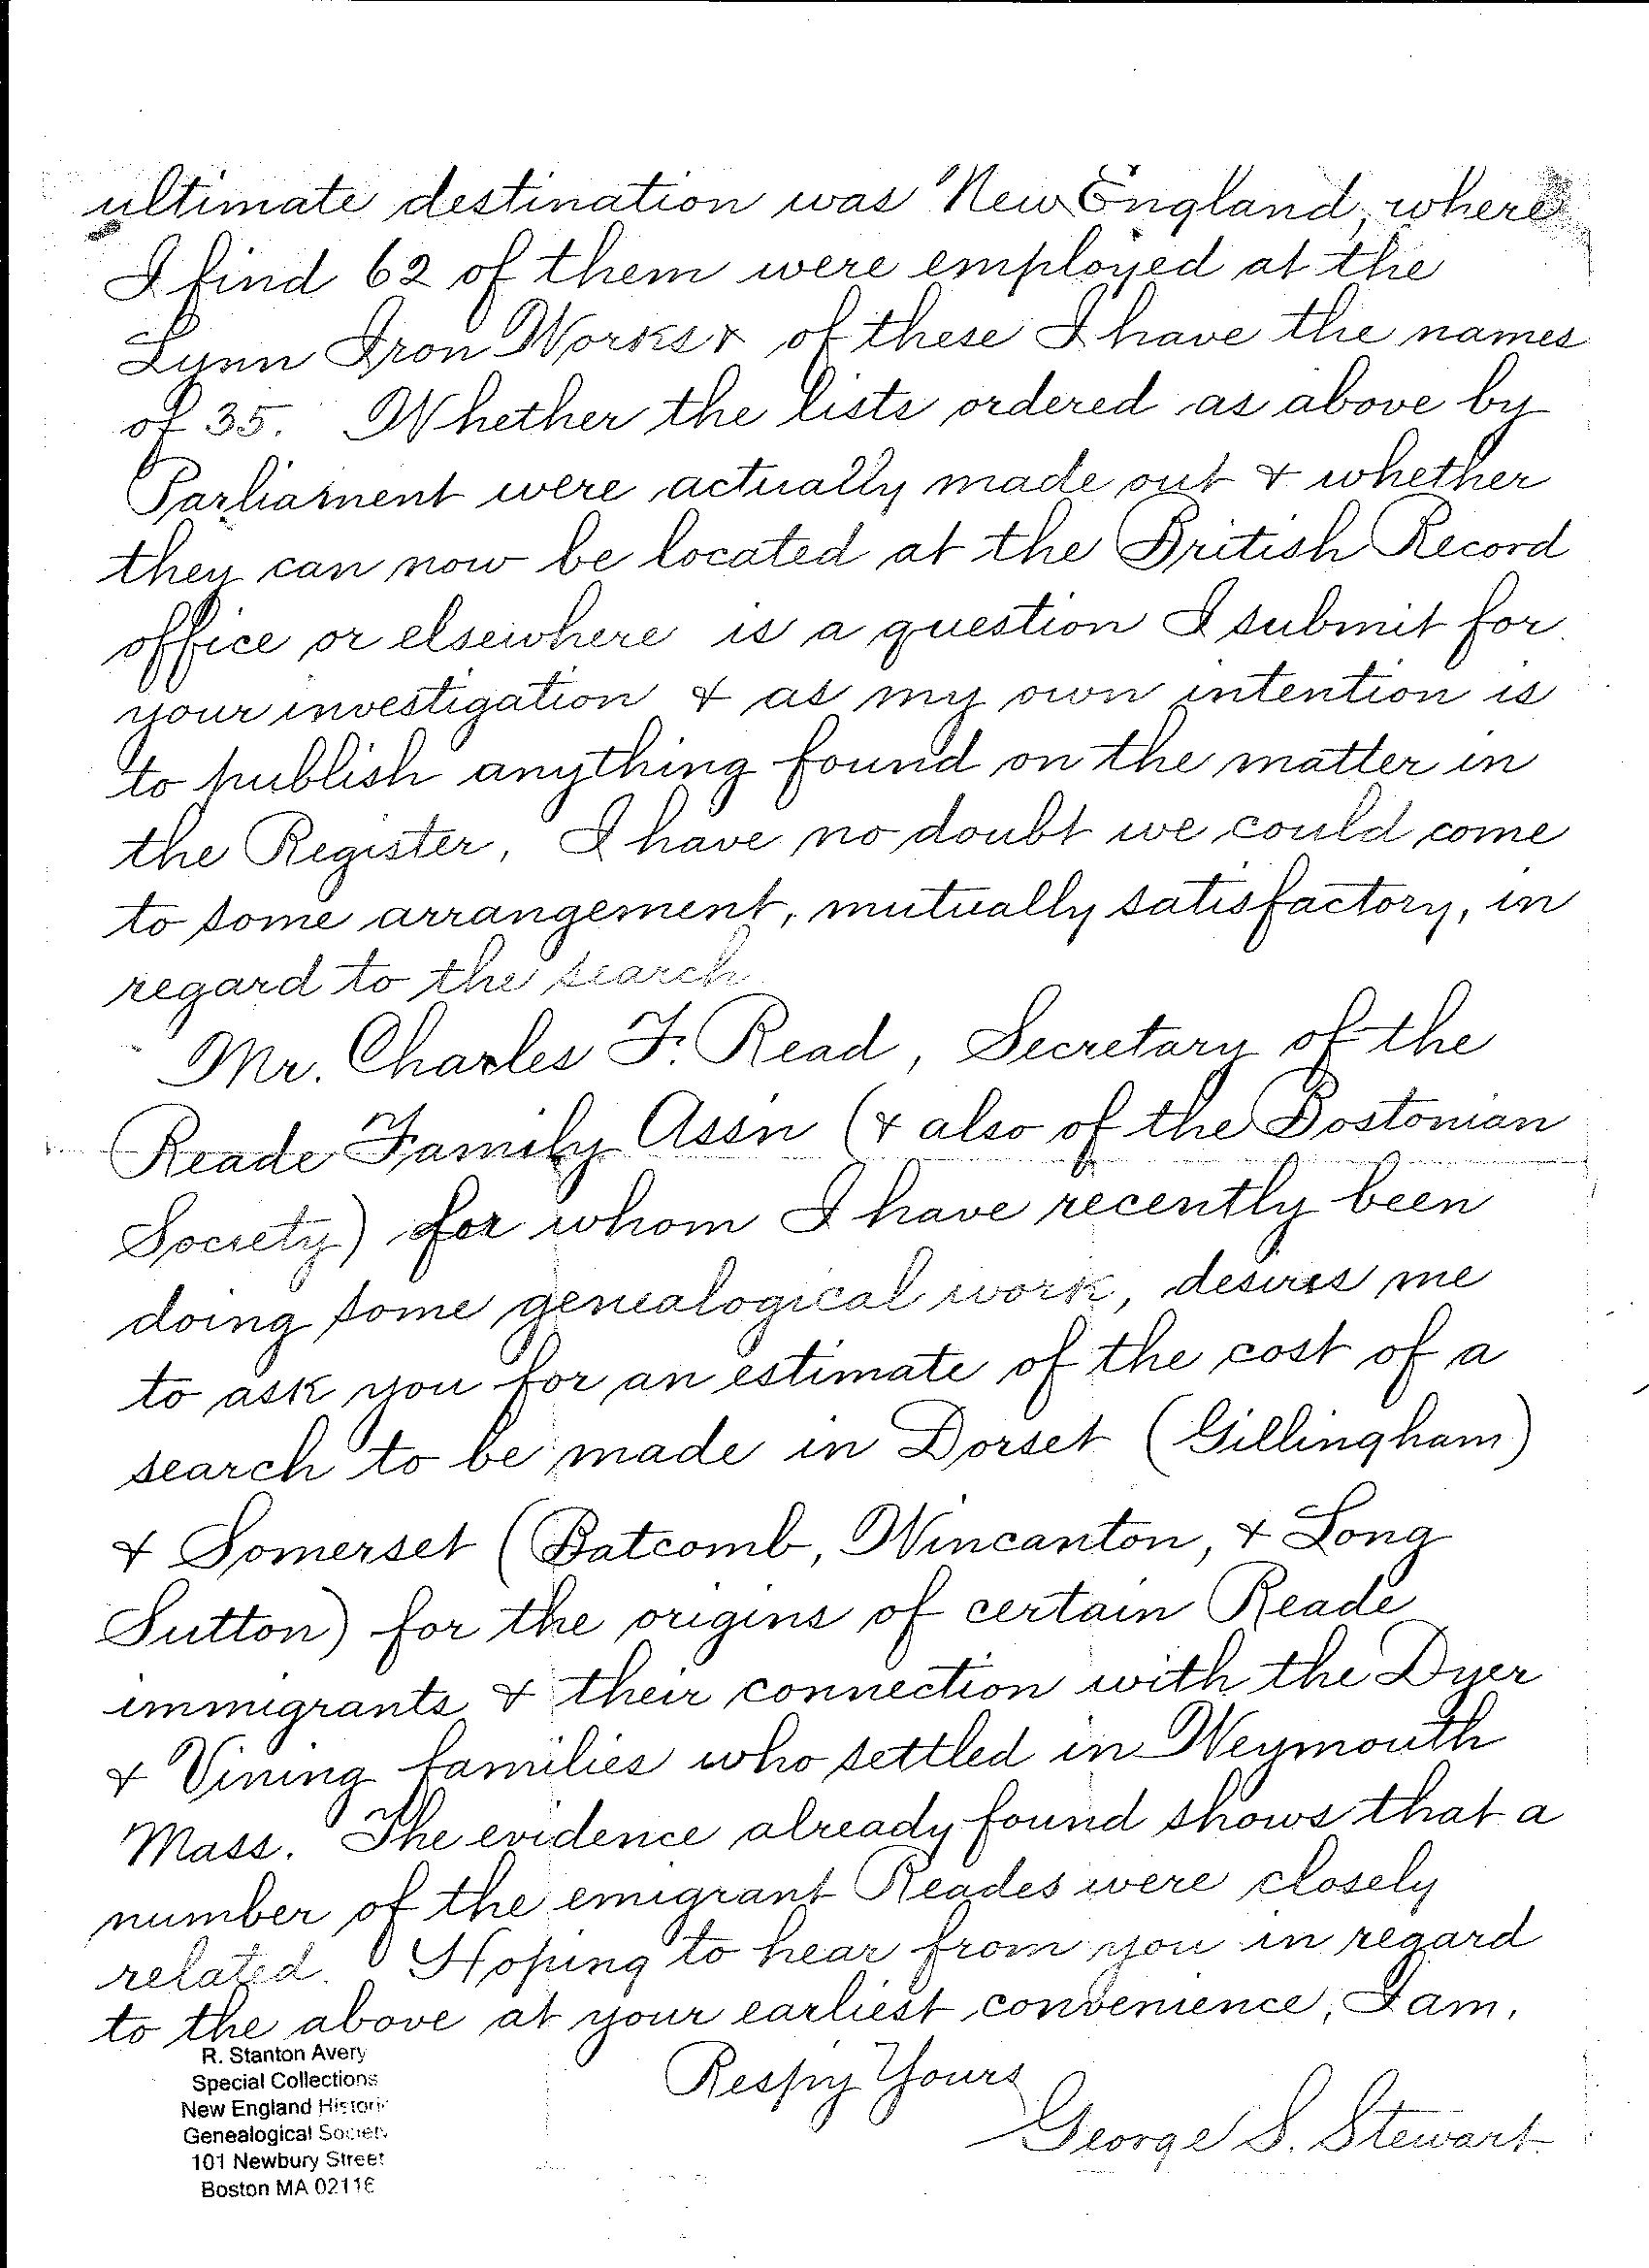 ultimate destination was New England, where
I find 62 of them were employed at the
Lynn Iron Works & of these I have the names
of 35. Whether the lists ordered as above by
Parliament were actually made out & whether
they can now be located at the British Record
office or elsewhere is a question I submit for
your investigation & as my own intention is
to publish anything found on the matter in
the Register, I have no doubt we could come
to some arrangement, mutually satisfactory, in
regard to the search
Mr. Charles F. Read, Secretary of the
Reade Family Assn (& also of the Bostonian
Society) for whom I have recently been
doing some genealogical work, desires me
to ask you for an estimate of the cost of a
search to be made in Dorset (Gillingham)
& Somerset (Batcomb, Wincanton, & Long
Sutton) for the origins of certain Reade
immigrants & their connection with the Dyer
& Vining families who settled in Weymouth
Mass. The evidence already found shows that a
number of the emigrant Reades were closely
related. Hoping to hear from you in regard
to the above at your earliest convenience, I am,
Respy Yours
George S. Stewart.
R. Stanton Avery
Special Collections
New England Historic
Genealogical Society
101 Newbury Street
Boston MA 02116